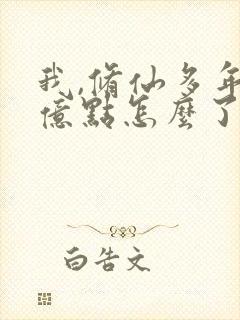 我,脩仙多年
億點怎麼了
白告文